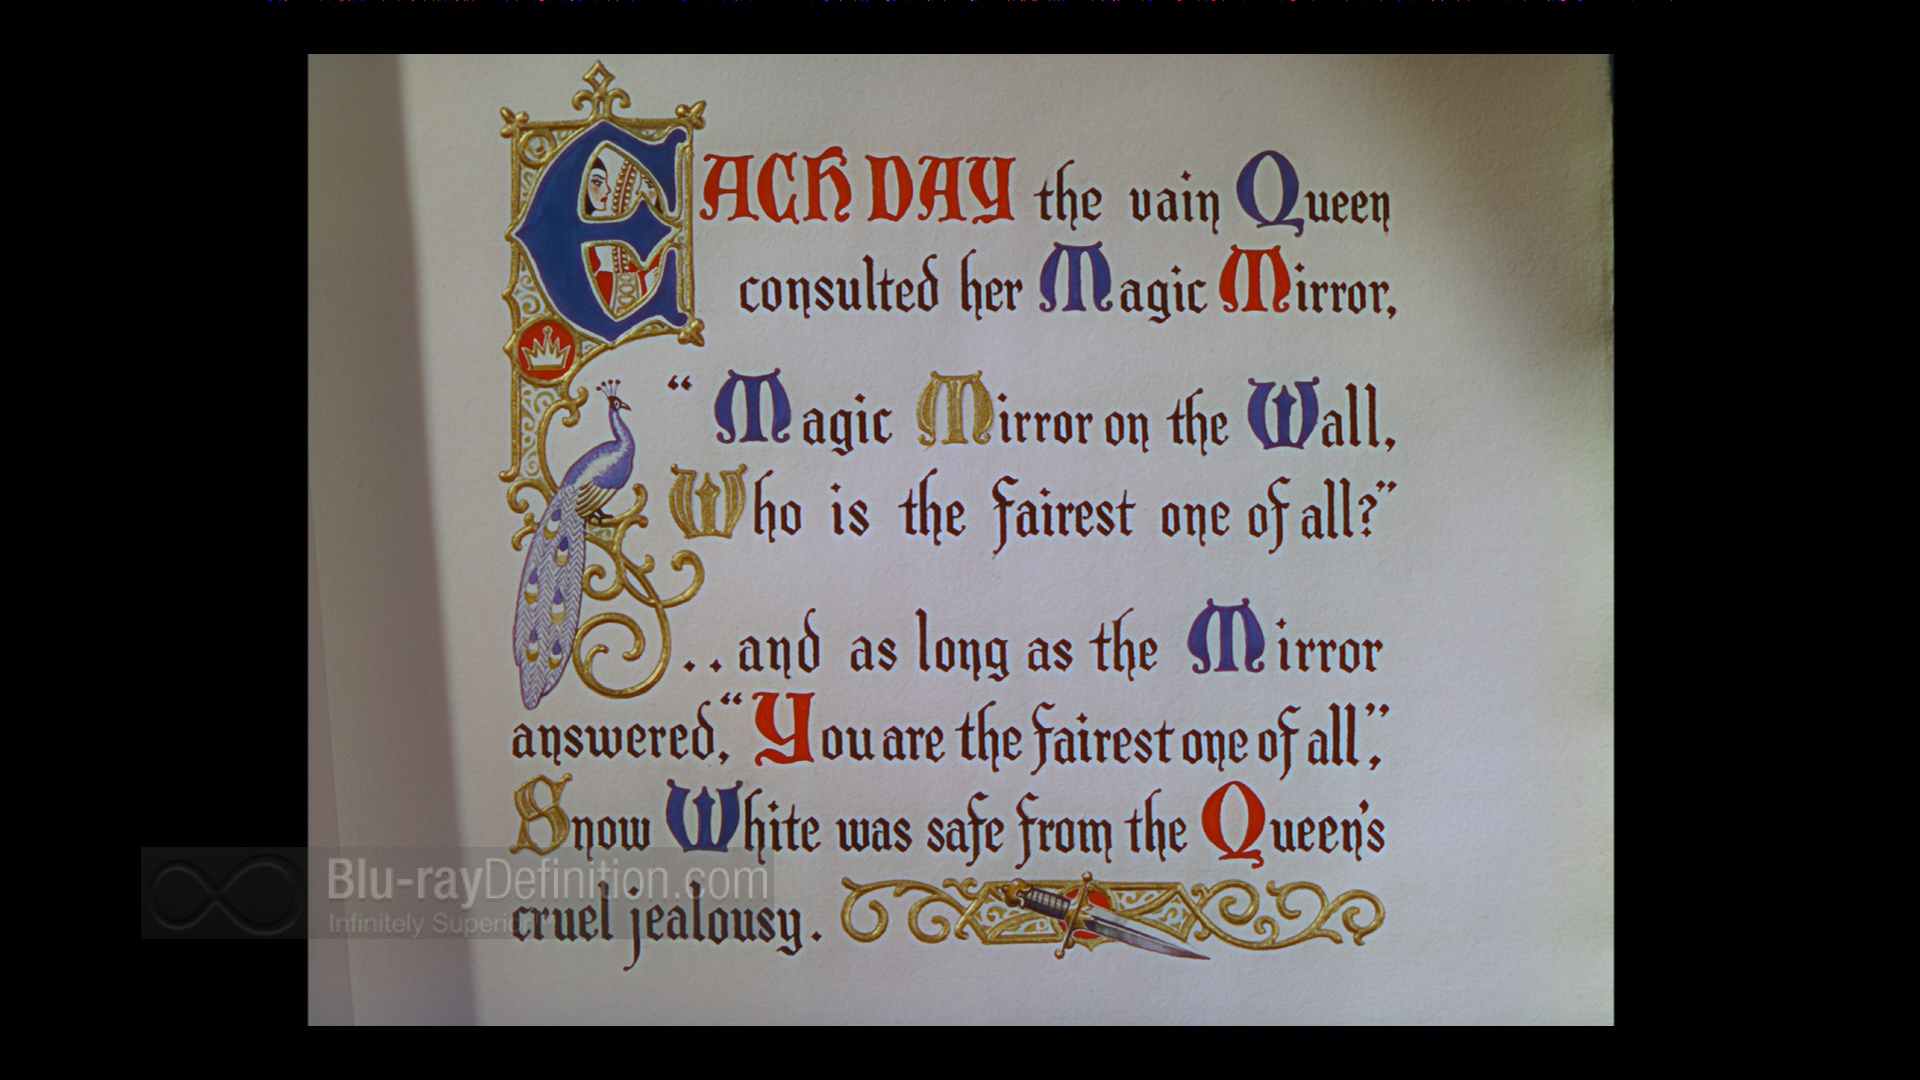 EACH DAY the vain Queen
consulted her Magic Mirror,
“Magic Mirror on the Wall,
Who is the fairest one of all?”
..and as long as the Mirror
answered, “You are the fairest one of all”,
Snow White was safe from the Queen's
cruel jealousy.
Blu-rayDefinition.com
Infinitely Superior